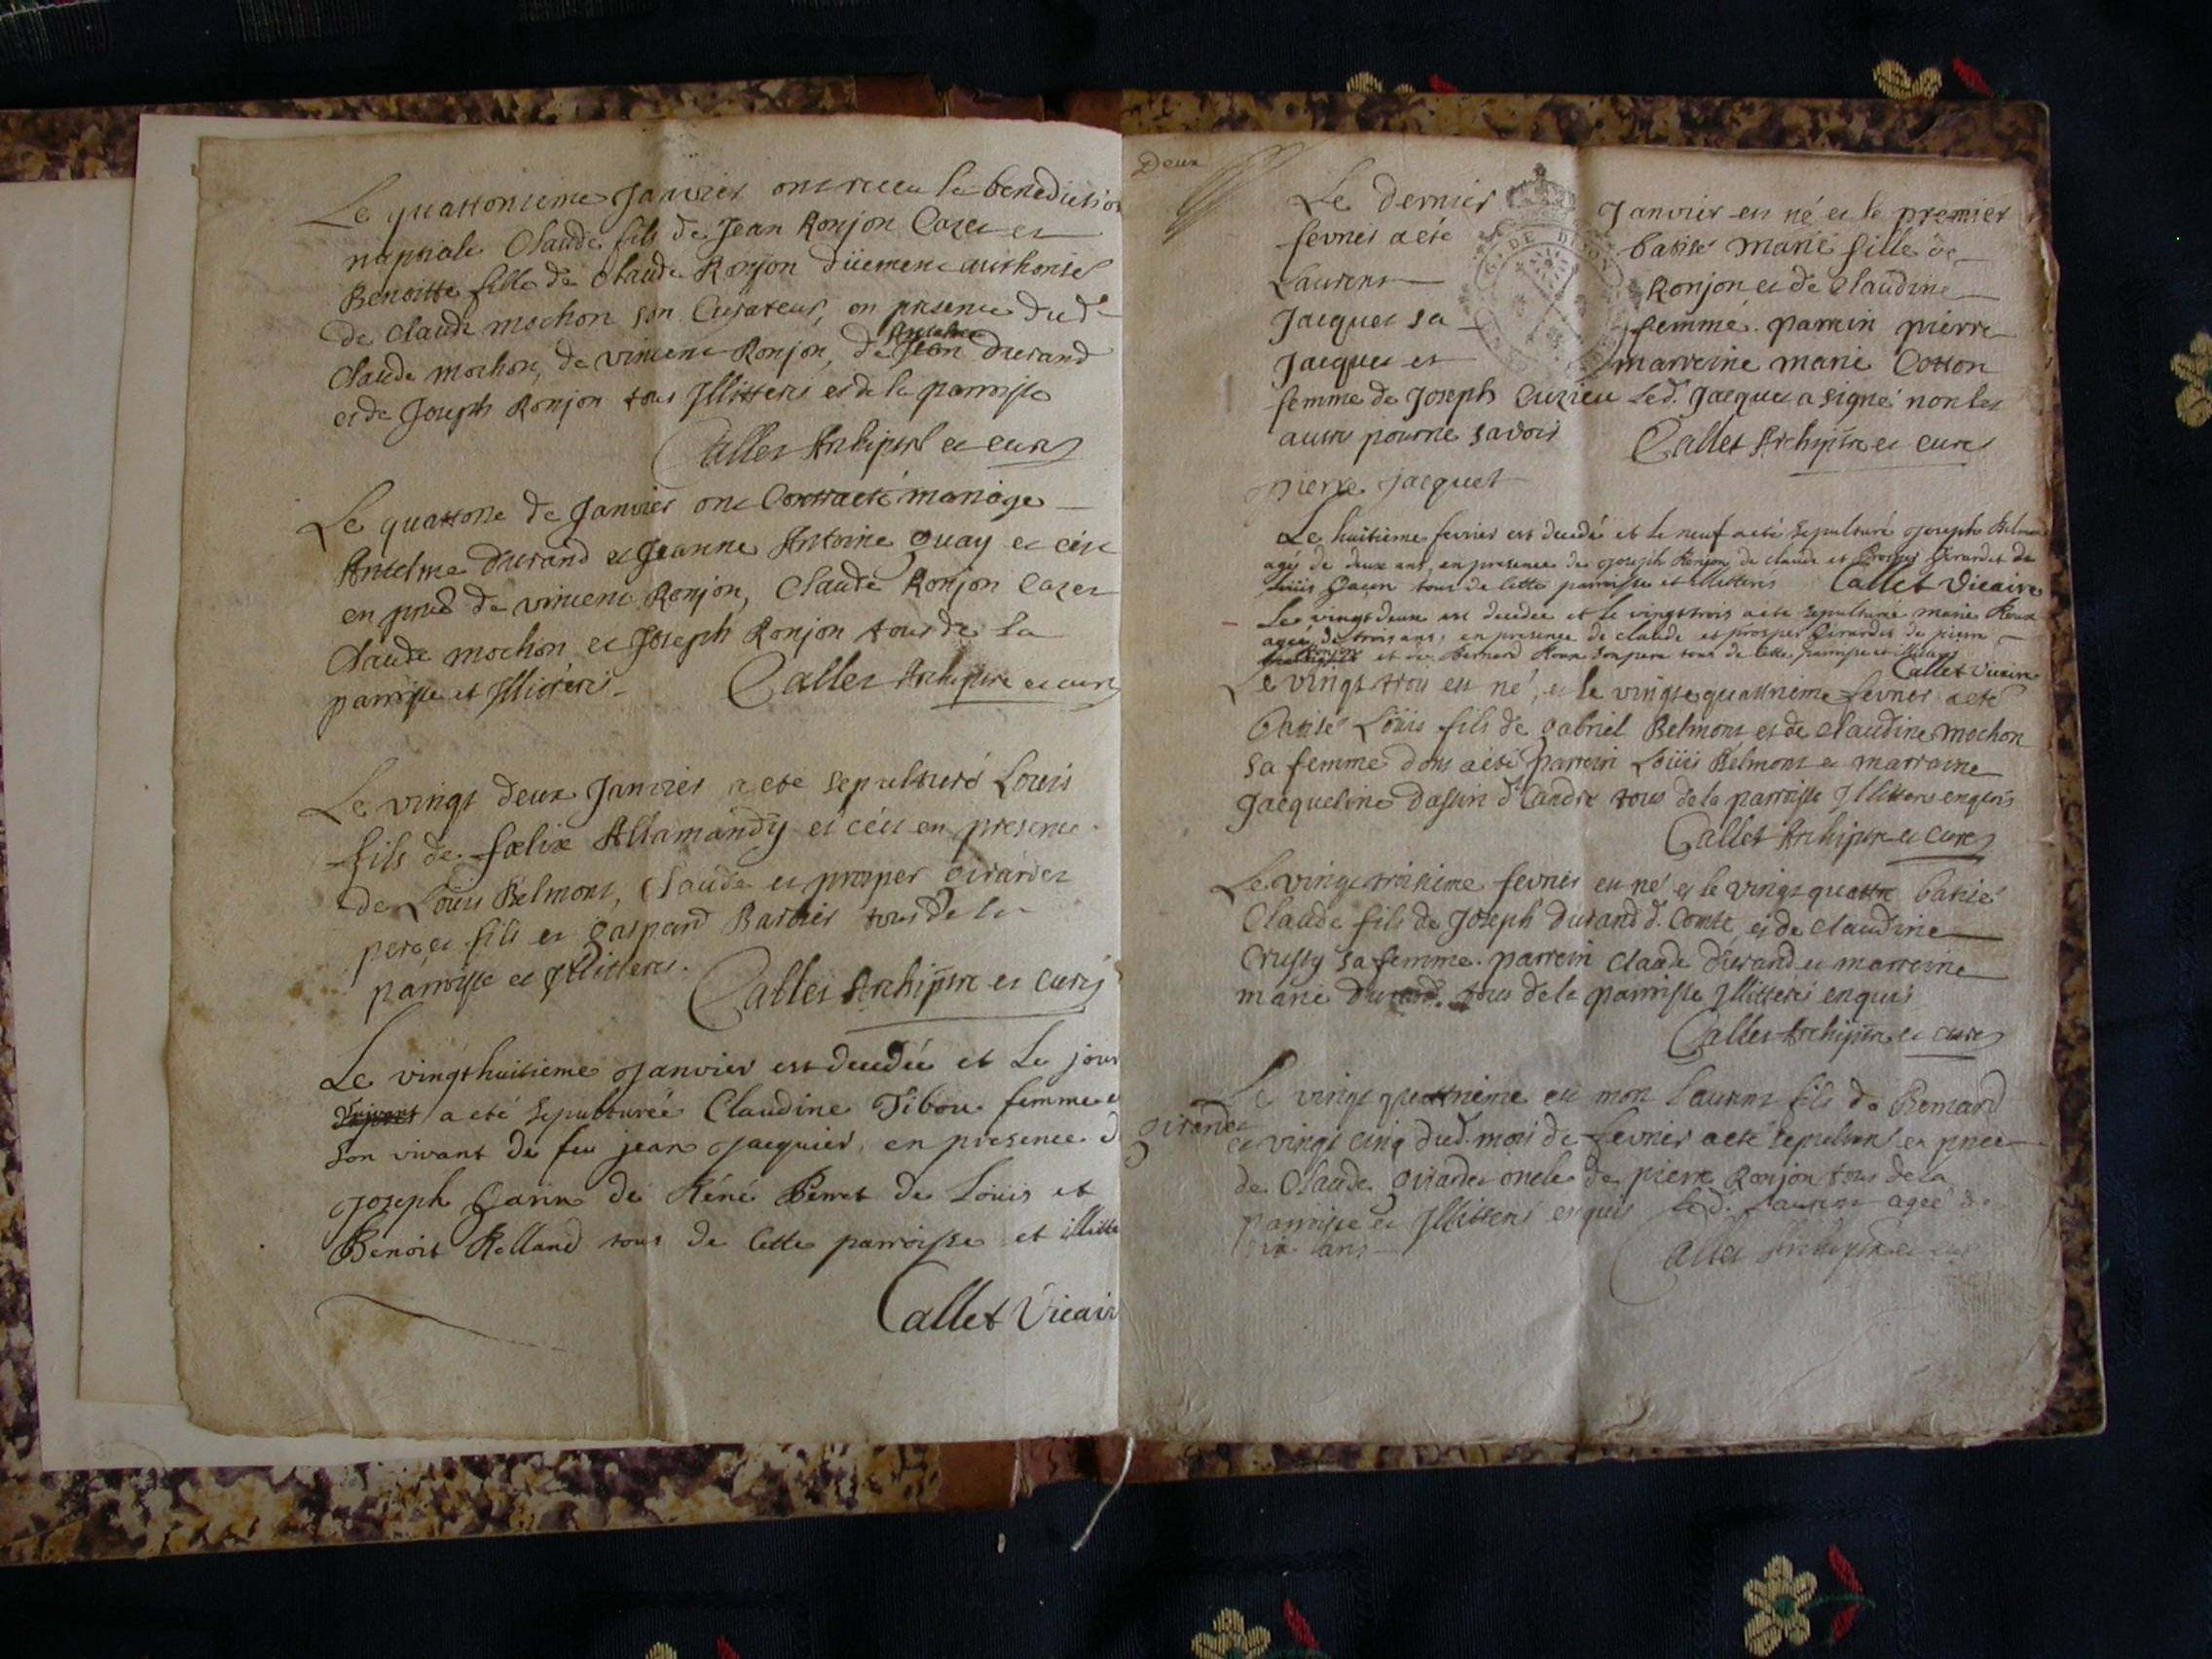 Le quattorsieme Janvier ont receu la benediction
nuptiale Claude fils de Jean Ronjon Cazet et
Benoitte fille de Claude Ronjon düement authorisé
de Claude mochon son Curateur, en presence dud.
Claude mochon, de vincent Ronjon, de Anselme Durand
et de Joseph Ronjon tous Jllitteres et de la parroisse
Callet Archiptre et curé
Le quattorse de Janvier ont Contracté mariage
Antelme durand et Jeanne Antoine guay et c'est
en pnce de vincent Ronjon, Claude Ronjon Cazet
Claude mochon et Joseph Ronjon tous de la
parroisse et Jllitterés
Callet Archiptre et curé
Le vingt deux Janvier a eté sepulturé Louis
fils de foelix Allamandy et c'est en presence
de Loüis Belmont, Claude et prosper Girardet
pere et fils et gaspard Barbier tous de la
parroisse et Jllitteres.
Callet Archiptre et curé
Le vingt huitieme Janvier est decedée et le jour
a eté sepulturée Claudine Tibou femme
son vivant de feu jean Jacquier, en presence
Joseph Garin de Réné Perret de Loüis et
Benoit Rolland tous de cette parroisse et
Callet Vicaire
Deux
Le dernier Janvier est né et le premier
fevrier a eté batisé marie fille de
Laurent Ronjon et de Claudine
Jacquet sa femme. parrein pierre
Jacquet et marreine marie Cotton
femme de Joseph Cuzieu Led. Jacquet a signé non les
autres pour ne savoir Callet Archiptre et curé
pierre jacquet
Le huitieme fevrier est decedé et le neuf a eté sepulturé Joseph Belmont
agé de deux ans, en presence de Joseph Ronjon de claude et Prosper Girardet de
Loüis Garin tous de cette parroisse et illitteres Callet Vicaire
Le vingt deux est decedée et le vingt trois a eté sepulturée marie Roux
agée de trois ans, en presence de claude et prosper Girardet de pierre
Ronjon et de Bernard Roux son pere tous de cette parroisse et illitterés
Callet Vicaire
Le vingt trois est né, et le vingt quattrieme fevrier a eté
Batisé Loüis fils de gabriel Belmont et de Claudine mochon
sa femme dont a eté parrein Loüis Belmont et marraine
Jacqueline dassin d. Candre tous de la parroisse Jllitteres enquis
Callet Archiptre et curé
Le vingt troisieme fevrier est né et le vingt quattre batisé
Claude fils de Joseph durand d. Comte, et de claudine
Crussy sa femme. parrein claude durand et marreine
marie durand. tous de la parroisse Jllitterés enquis
Callet Archiptre et curé
Le vingt quattrieme est mort Laurent fils de Bernard
Girardet
et vingt cinq dud. mois de fevrier a eté sepulturé en pnce
de Claude girardet oncle de pierre Ronjon tous de la
parroisse et Jllitterés enquis led. Laurent agée de
ans
Callet Archiptre et curé